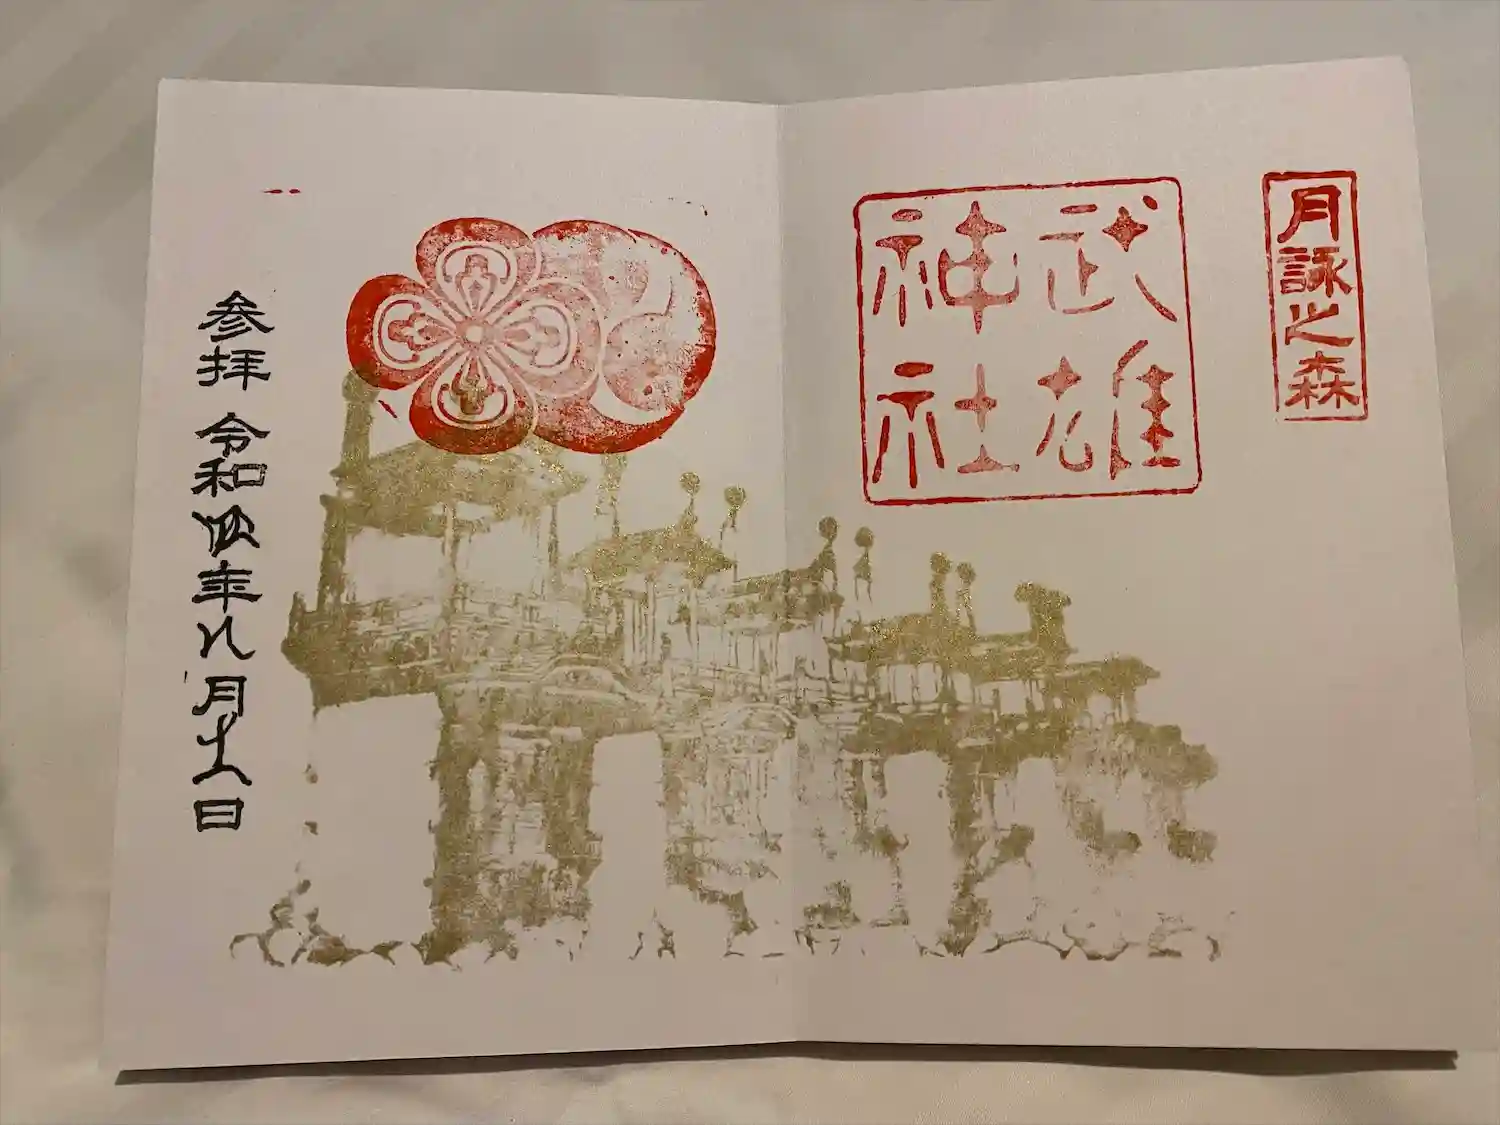 月詠之森
武雄
神社
参拝 令和年八月十八日